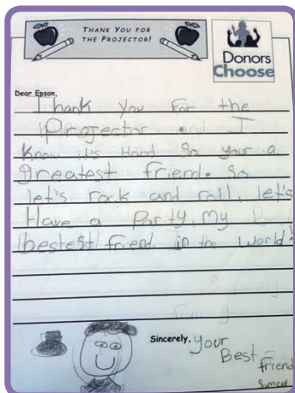 THANK YOU FOR
THE PROJECTOR!
Donors
Choose
Dear Epson,
Thank you for the
Projector and I
Know it's Hard so your a
greatest friend. so
let's rock and roll, let's
Have a Party, My
bestest friend in the world!
Sincerely, your
Best
friend